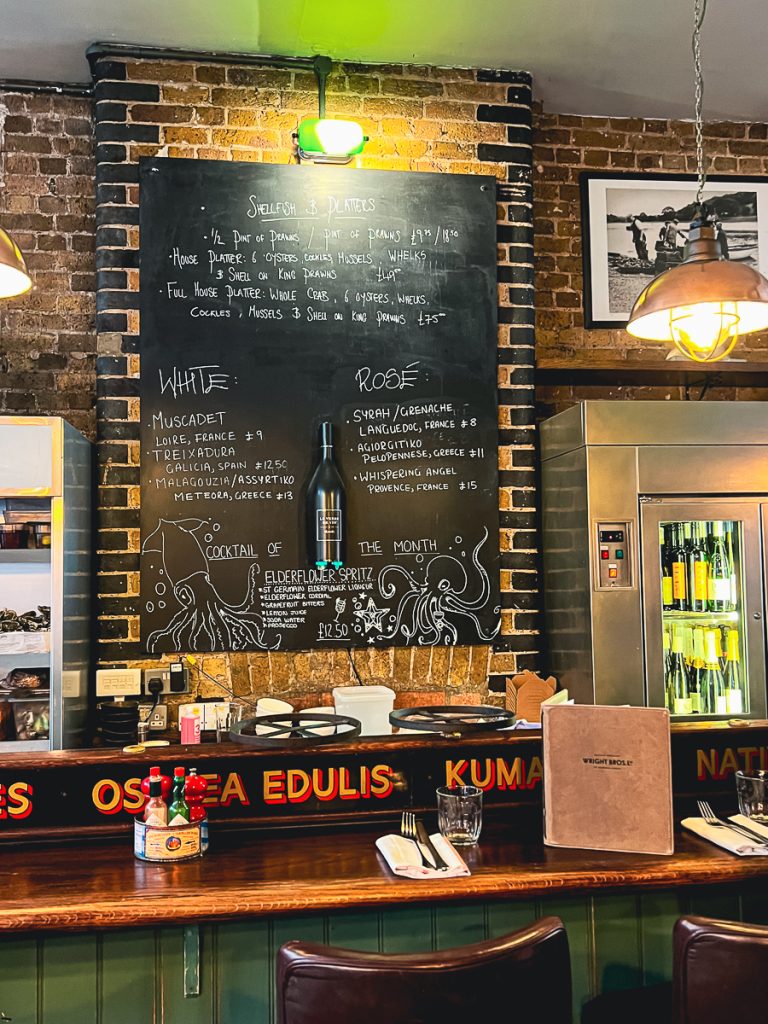 SHELLFISH & PLATTERS
· 1/2 PINT OF PRAWNS / PINT OF PRAWNS £9.75/18.50
· HOUSE PLATTER: 6 OYSTERS, COCKLES, MUSSELS, WHELKS
& SHELL ON KING PRAWNS £49.00
· FULL HOUSE PLATTER: WHOLE CRAB, 6 OYSTERS, WHELKS,
COCKLES, MUSSELS & SHELL ON KING PRAWNS £75.00
WHITE:
· MUSCADET
LOIRE, FRANCE £9
· TREIXADURA
GALICIA, SPAIN £12.50
· MALAGOUZIA/ASSYRTIKO
METEORA, GREECE £13
ROSÉ:
· SYRAH/GRENACHE
LANGUEDOC, FRANCE £8
· AGIORGITIKO
PELOPENNESE, GREECE £11
· WHISPERING ANGEL
PROVENCE, FRANCE £15
COCKTAIL OF THE MONTH
ELDERFLOWER SPRITZ
*ST GERMAIN ELDERFLOWER LIQUEUR
*ELDERFLOWER CORDIAL
*GRAPEFRUIT BITTERS
*LEMON JUICE
*SODA WATER
*PROSECCO
£12.50
ES OS EA EDULIS KUMA NATI
WRIGHT BROS. LTD